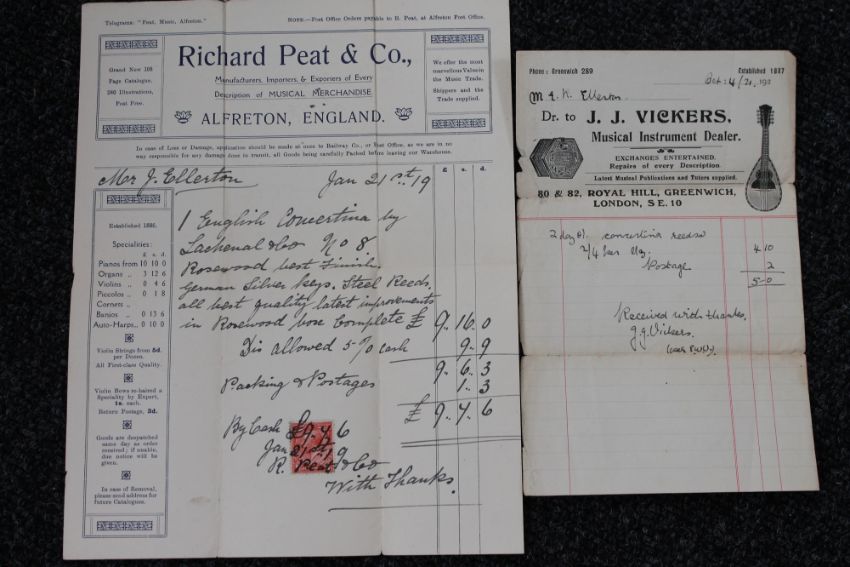 Telegrams: "Peat, Music, Alfreton."
NOTE.—Post Office Orders payable to R. Peat, at Alfreton Post Office.
Grand New 108
Page Catalogue.
280 Illustrations,
Post Free.
Richard Peat & Co.,
Manufacturers, Importers, & Exporters of Every
Description of MUSICAL MERCHANDISE
ALFRETON, ENGLAND.
We offer the most
marvellous Value in
the Music Trade.
Shippers and the
Trade supplied.
In case of Loss or Damage, application should be made at once to Railway Co., or Post Office, as we are in no
way responsible for any damage done in transit, all Goods being carefully Packed before leaving our Warehouse.
Mr J. Ellerton Jan 21st 19
£ s. d.
Established 1886.
Specialities:
£ s. d.
Pianos from 10 10 0
Organs „ 3 12 6
Violins „ 0 4 6
Piccolos „ 0 1 8
Cornets „
Banjos „ 0 13 6
Auto-Harps „ 0 10 0
Violin Strings from 8d.
per Dozen.
All First-class Quality.
Violin Bows re-haired a
Speciality by Expert,
1s. each.
Return Postage, 3d.
Goods are despatched
same day as order
received; if unable,
due notice will be
given.
In case of Removal,
please send address for
future Catalogues.
1 English Concertina by
Lachenal & Co No 8.
Rosewood best Finish.
German Silver keys. Steel Reeds.
all best quality latest improvements
in Rosewood box Complete £ 9 16 0
Dis allowed 5 % cash 9 9
9 6 3
Packing & Postages 1 3
£ 9 7 6
By Cash £9 7 6
Jan 21st 19
R. Peat & Co
With Thanks.
Phone: Greenwich 289
Established 1837
Oct: 4/20, 192
M J. Ellerton
Dr. to J. J. VICKERS,
Musical Instrument Dealer.
EXCHANGES ENTERTAINED.
Repairs of every Description.
Latest Musical Publications and Tutors supplied.
80 & 82, ROYAL HILL, GREENWICH,
LONDON, S.E. 10
2 doz concertina reeds
2/4 per dz. 4 10
Postage 2
5 - 0
Received with thanks.
J. J. Vickers.